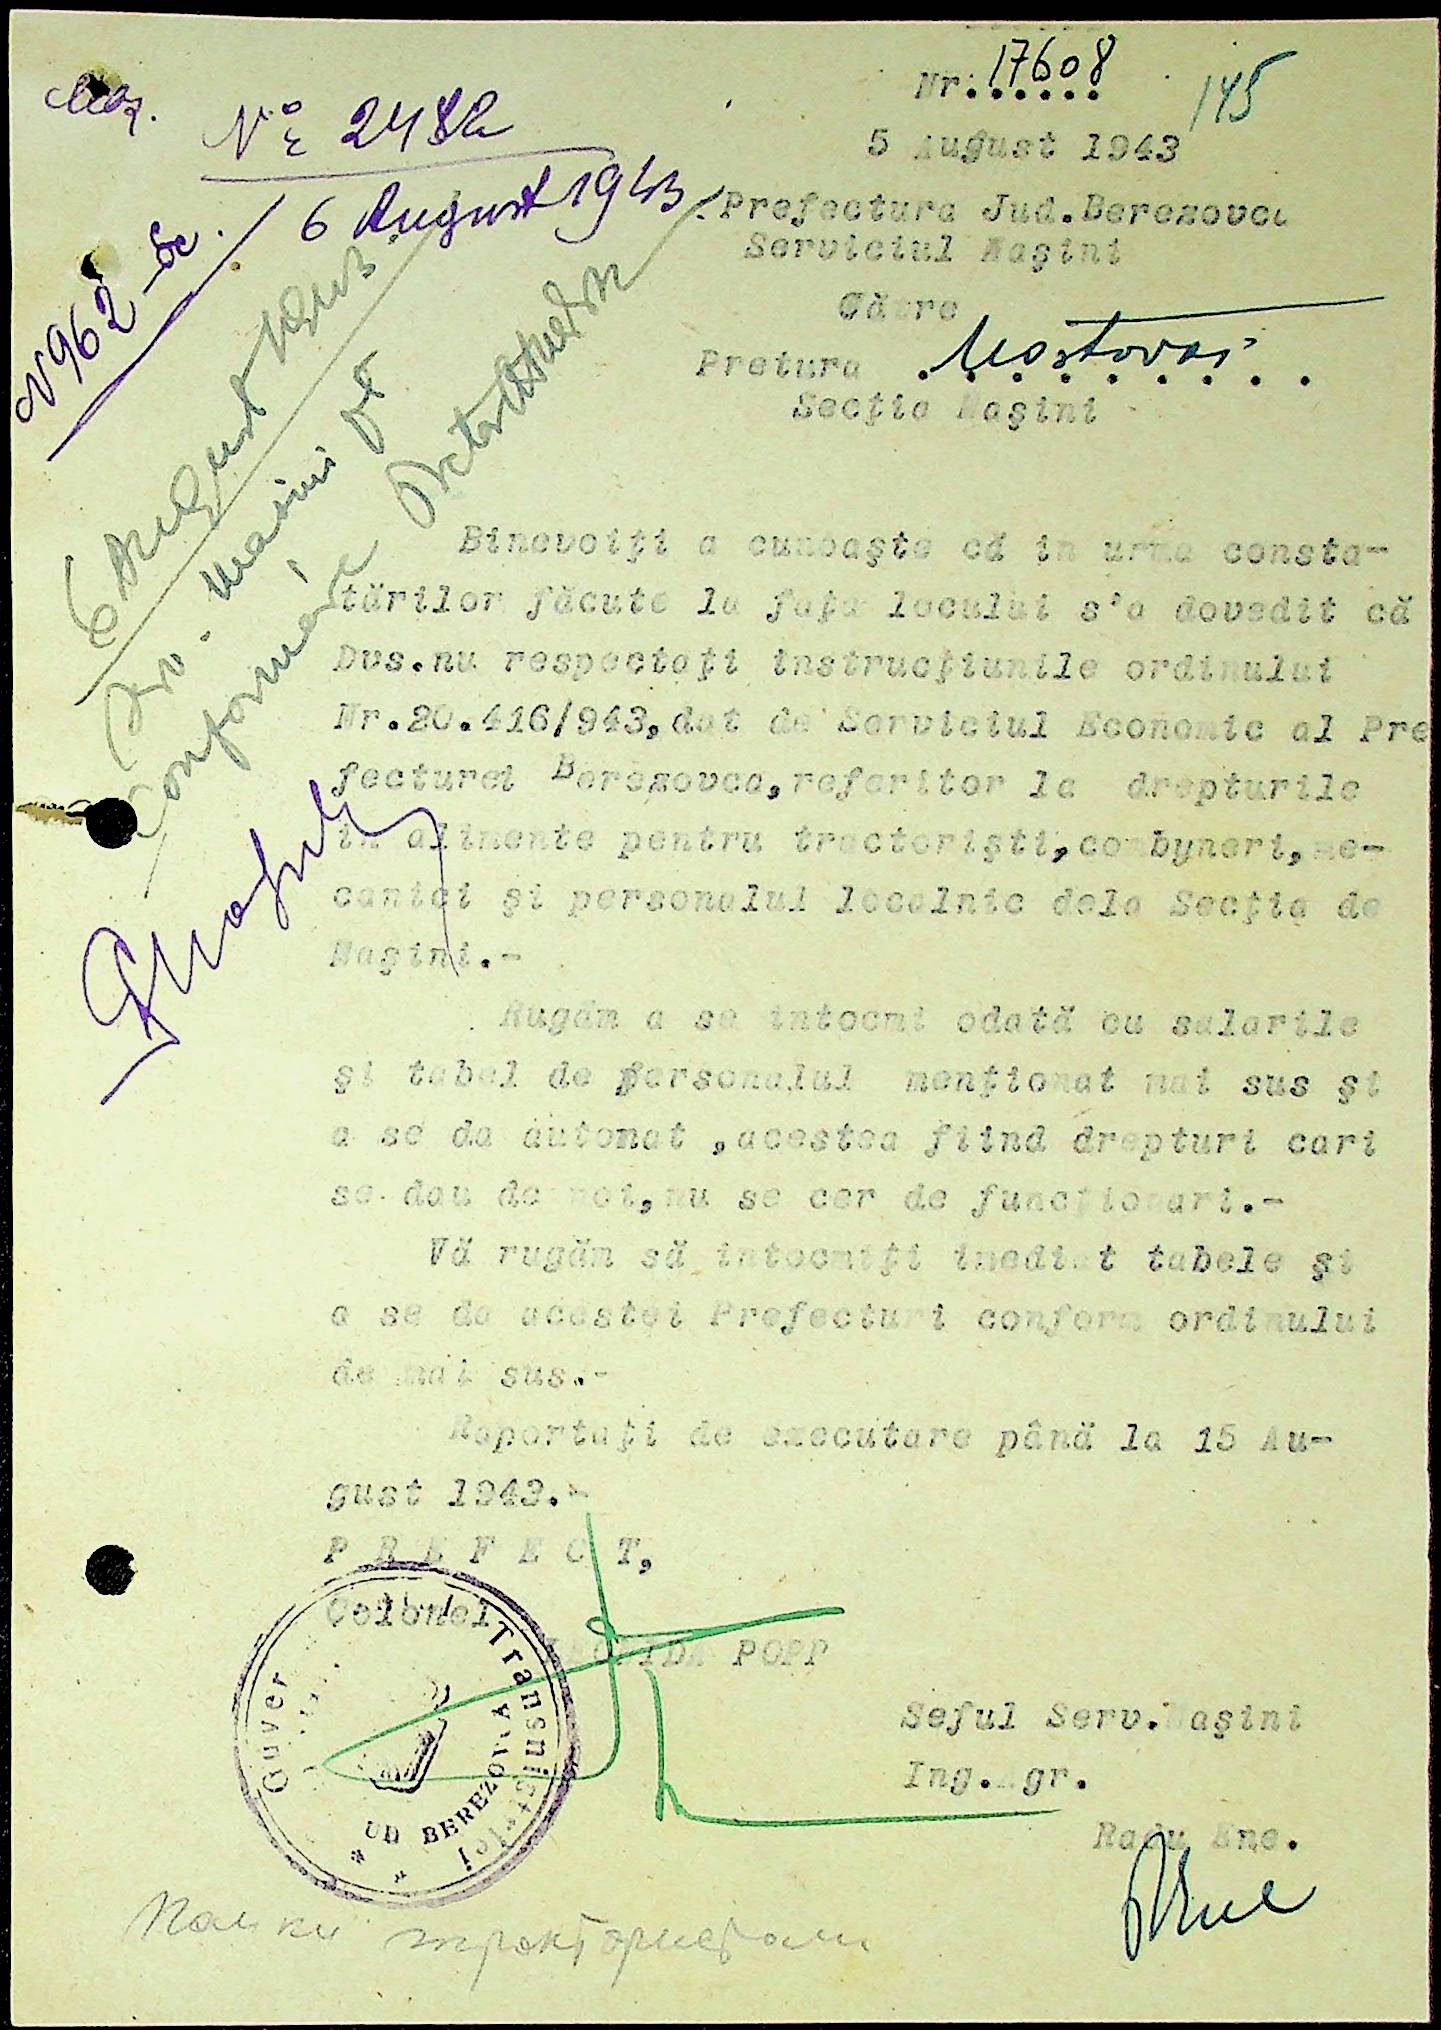 Nr. 17608
145
5 August 1943
Prefectura Jud.Berezovca
Serviciul Maşini
Către
Pretura Mostovoi
Secţia Maşini
Nº 2482
6 August 1943
N962
6 August 1943
Serv. Masini pt
conformare
Binevoiţi a cunoaşte că in urma consta-
tărilor făcute la faţa locului s'a dovedit că
Dvs.nu respectaţi instrucţiunile ordinului
Nr.20.416/943,dat de Serviciul Economic al Pre
fecturei Berezovca,referitor la drepturile
in alimente pentru tractorişti,combyneri,me-
canici şi personalul localnic dela Secţia de
Maşini.-
Rugăm a se intocmi odată cu salarile
şi tabel de personalul menţionat mai sus şi
a se da automat ,acestea fiind drepturi cari
se dau de noi,nu se cer de funcţionari.-
Vă rugăm să intocmiţi imediat tabele şi
a se da acestei Prefecturi conform ordinului
de mai sus.-
Raportaţi de executare până la 15 Au-
gust 1943.-
P R E F E C T,
Colonel
POPP
Guver Transnistriei
UD BEREZOVCA
Seful Serv.Maşini
Ing.Agr.
Radu Ene.
REne
трактористам